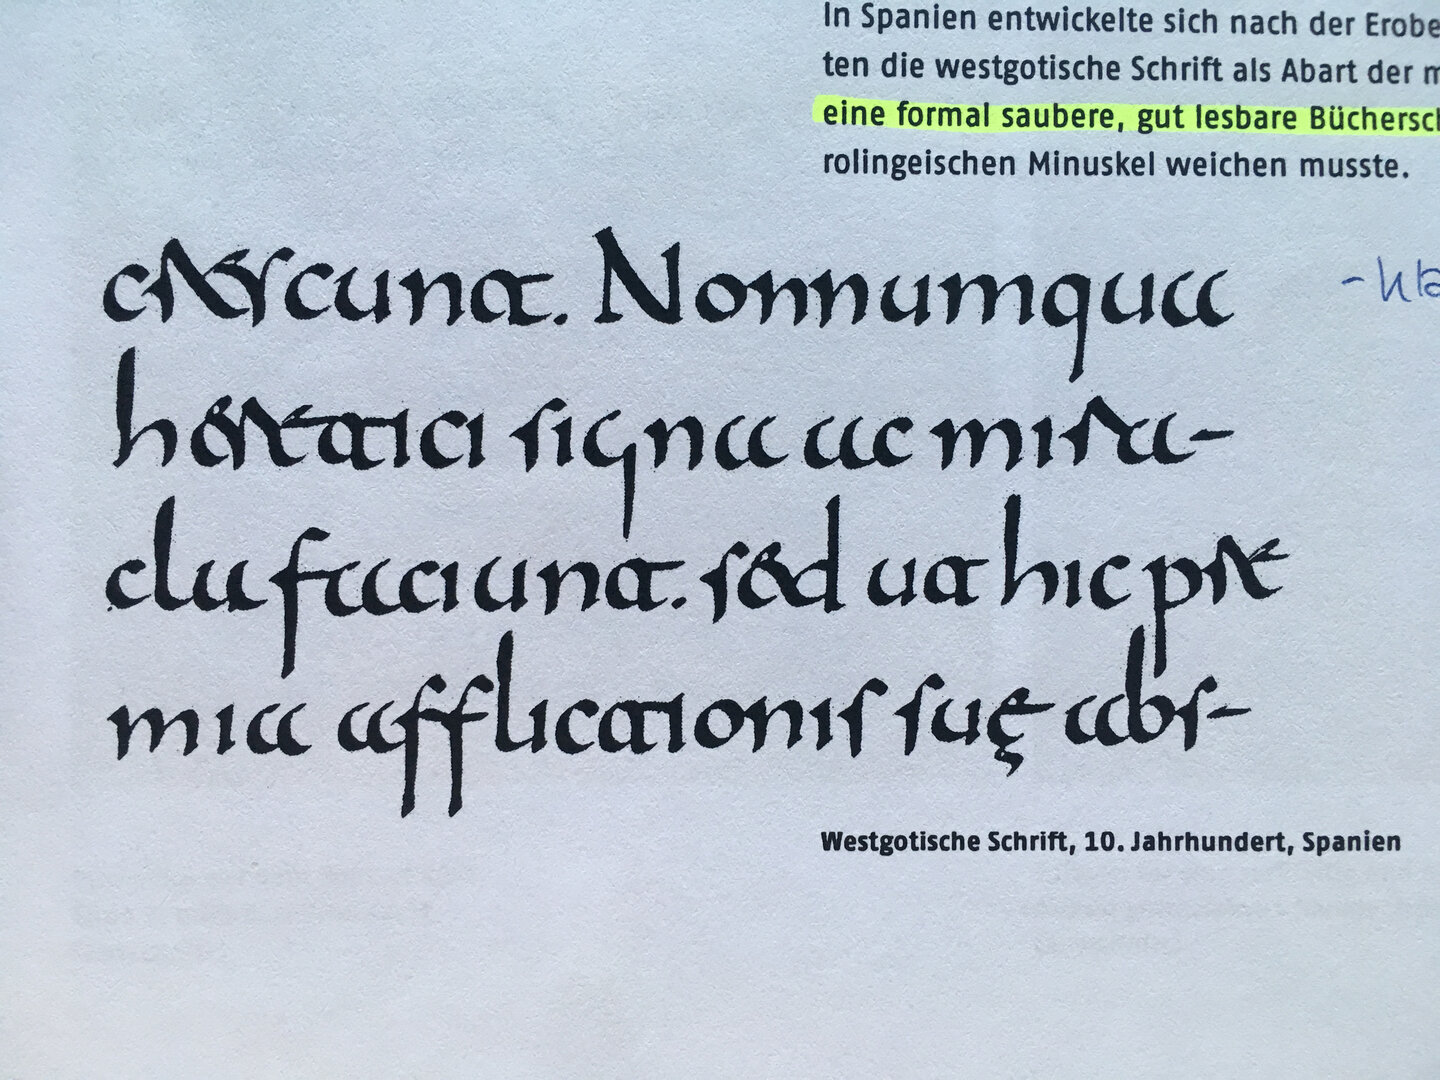 In Spanien entwickelte sich nach der Erobe
ten die westgotische Schrift als Abart der m
eine formal saubere, gut lesbare Büchersch
rolingeischen Minuskel weichen musste.
crescunt. Nonnumqua
heretici signa ac mira-
cla faciunt. sed ut hic pre
mia afflictionis suę abs-
Westgotische Schrift, 10. Jahrhundert, Spanien